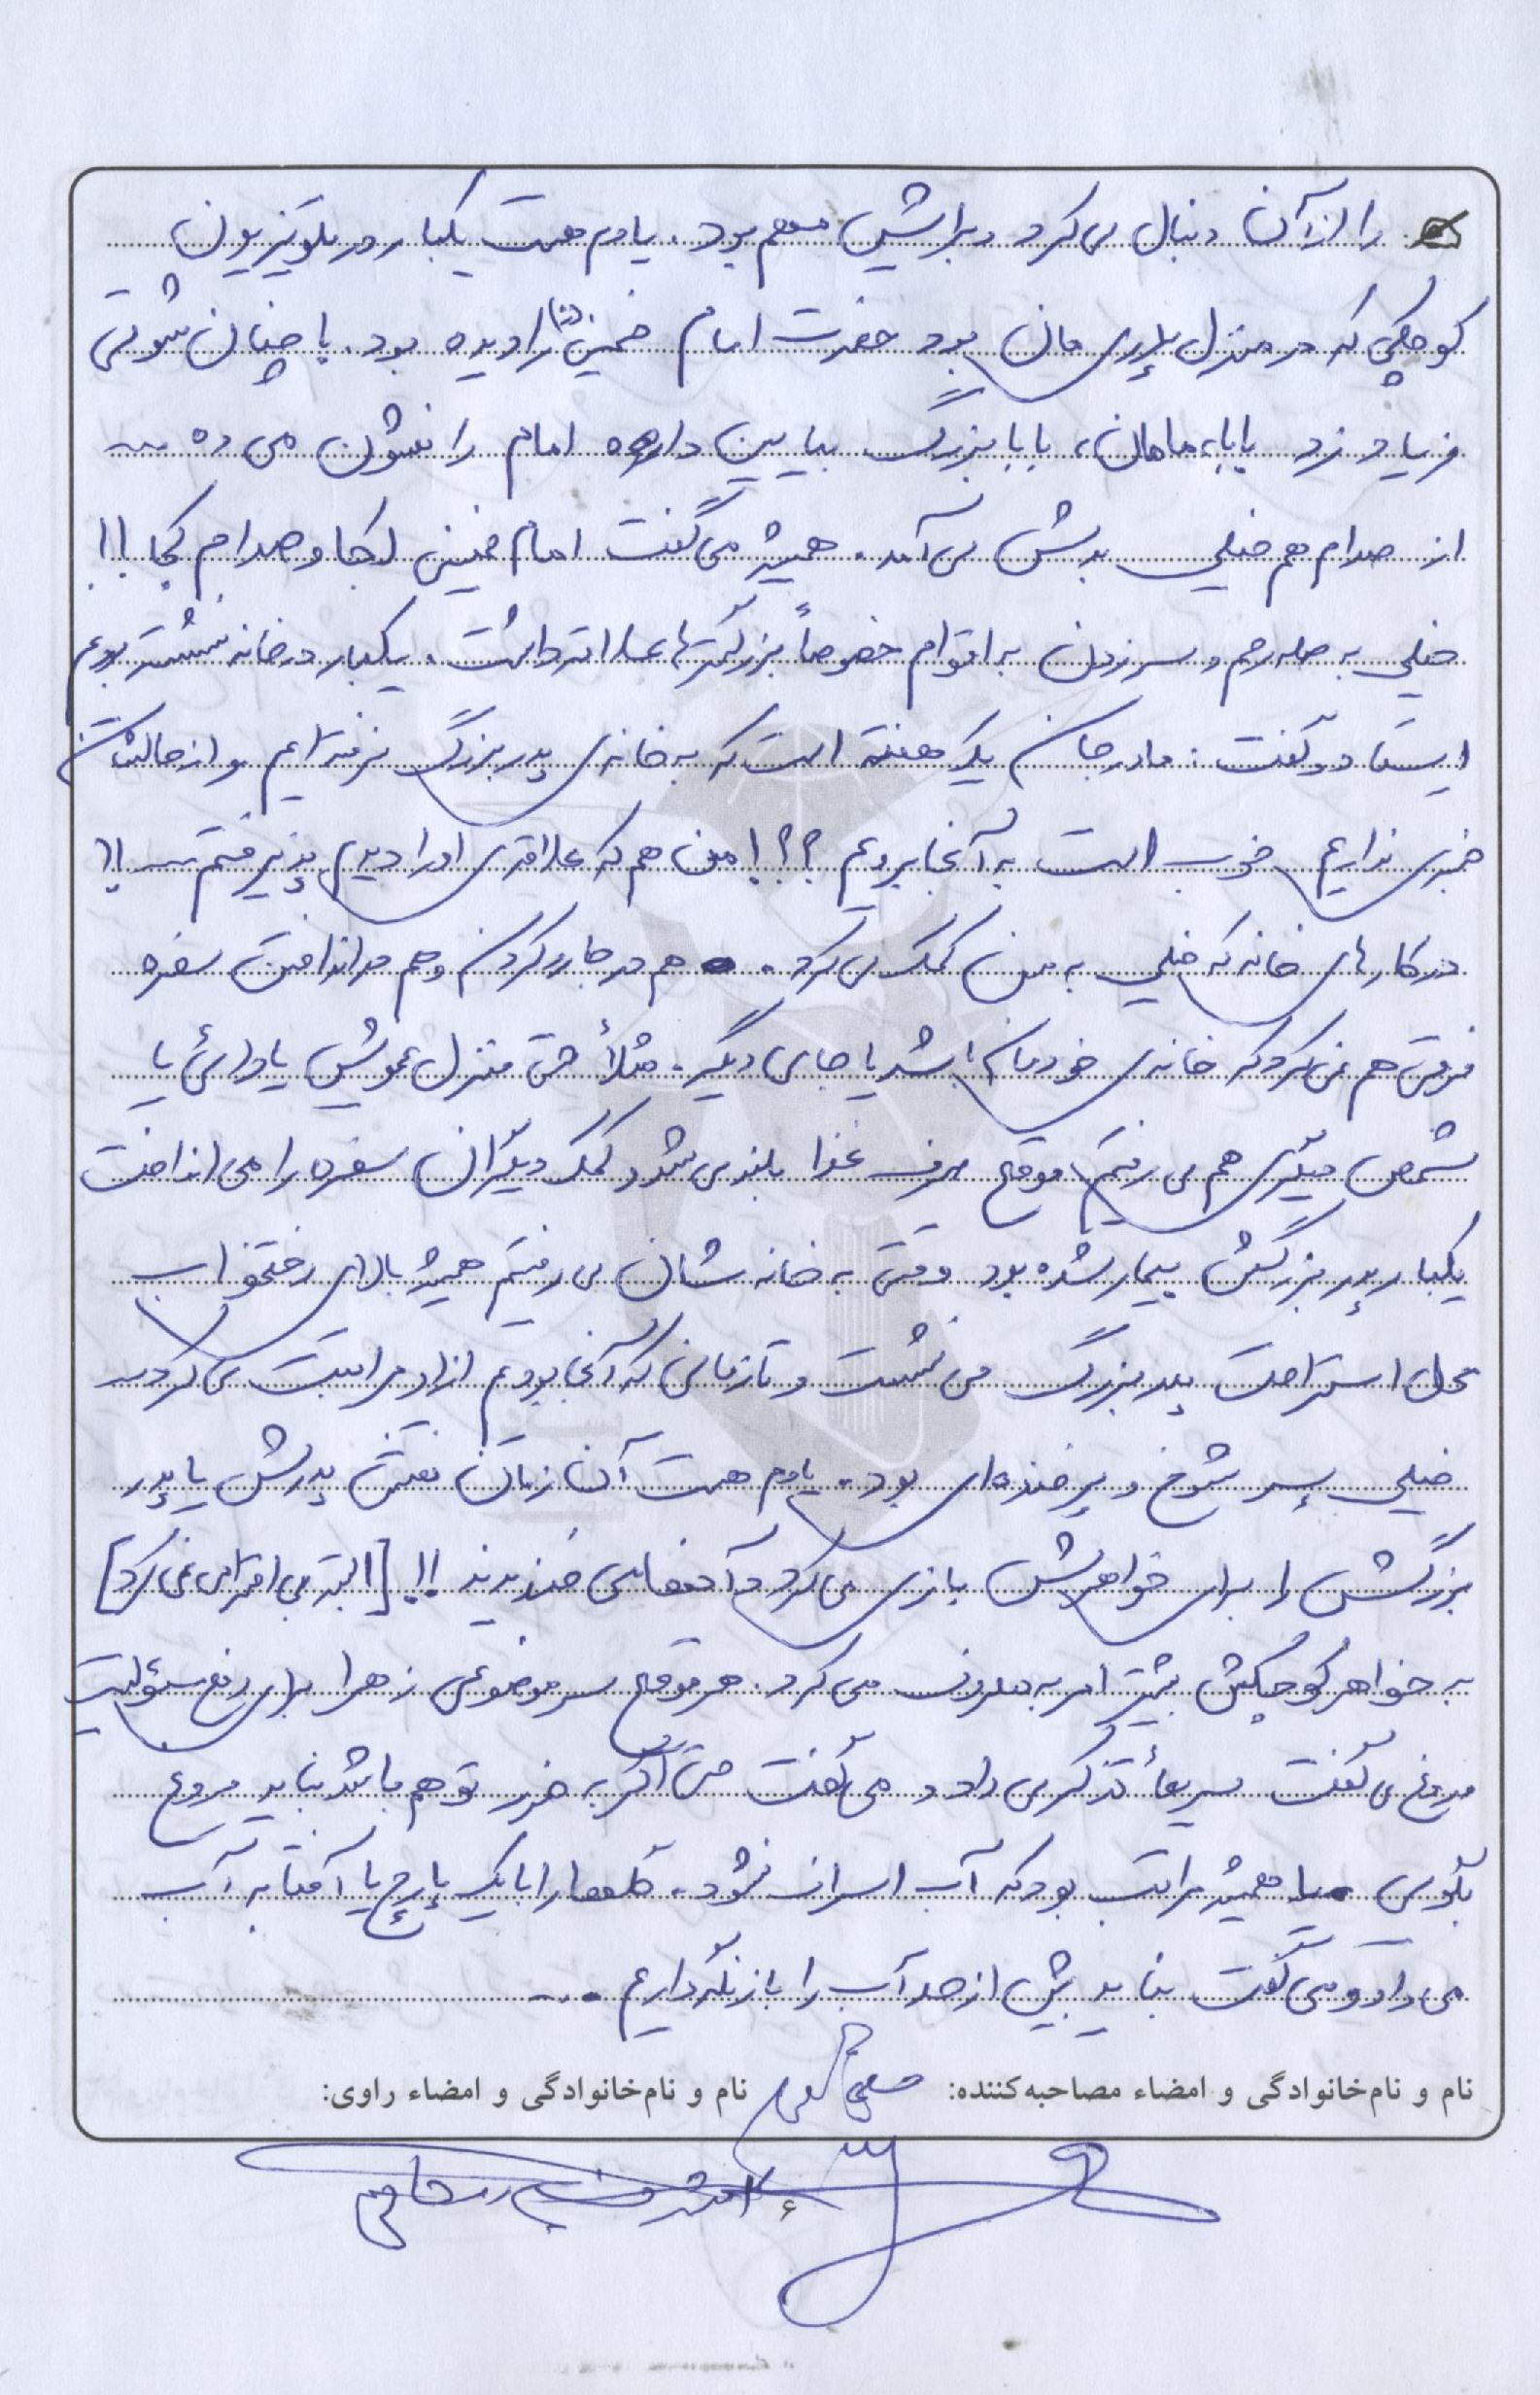 را از آن دنبال می‌کرد و برایش مهم بود. یادم هست یکبار در تلویزیون
کوچکی که در منزل پدری مان بود حضرت امام خمینی (ره) را دیده بود. با چنان شوقی
فریاد زد بابا، مامان، بابا بزرگ بیایین داره امام را نشون می ده ...
از صدام هم خیلی بدش می آمد. همیشه می گفت امام خمینی کجا و صدام کجا !!
خیلی به صله رحم و سر زدن به اقوام خصوصاً بزرگترها علاقه داشت. یکبار در خانه نشسته بودم
ایستاد و گفت: مادر جان یک هفته است که به خانه‌ی پدر بزرگ نرفته ایم و از حالشان
خبری نداریم خوب است به آنجا برویم ؟؟! من هم که علاقه‌ی او را دیدم پذیرفتم ... !!
در کارهای خانه که خیلی به من کمک می کرد. هم در جارو کردن و هم در انداختن سفره
فرقی هم نمی کرد که خانه‌ی خودمان باشد یا جای دیگر. مثلاً حتی منزل عمویش یا دائی یا
شخص دیگری هم می رفتیم موقع صرف غذا بلند می شد و کمک دیگران سفره را می انداخت
یکبار پدر بزرگش بیمار شده بود وقتی به خانه شان می رفتیم همیشه بالای رختخواب
محل استراحت پدر بزرگ می نشست و تا زمانی که آنجا بودیم از او مراقبت می کرد ...
خیلی پسر شوخ و پر خنده ای بود. یادم هست آن زمان نقش پدرش یا پدر
بزرگش را برای خواهرش بازی می کرد و آنها می خندیدند !! [البته بی احترامی نمی کرد]
به خواهر کوچکش بیشتر امر به معروف می کرد. هر موقع سر موضوعی زهرا برای رفع مسئولیت
دروغ می گفت سریعاً تذکر می داد و می گفت حتی اگر به ضرر تو هم باشد نباید دروغ
بگویی. همیشه مراقب بود که آب اسراف نشود. گلها را با یک پارچ یا آفتابه آب
می داد و می گفت نباید بیش از حد آب را باز نگه داریم ...
نام و نام‌خانوادگی و امضاء مصاحبه‌کننده: نام و نام‌خانوادگی و امضاء راوی: